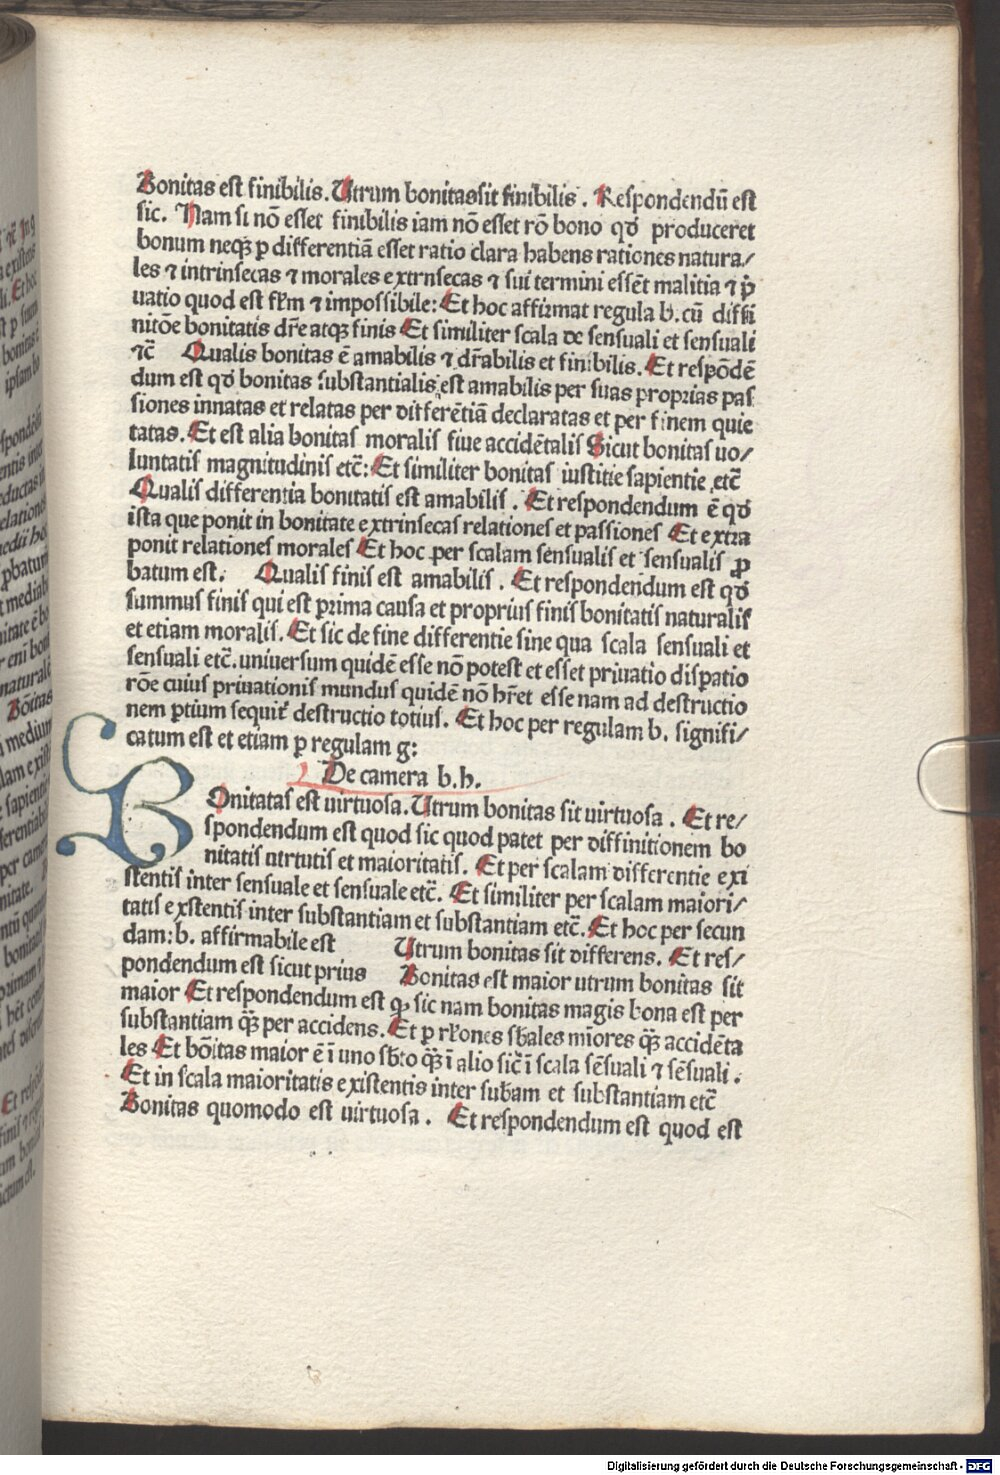 Bonitas est finibilis. Utrum bonitassit finibilis . Respondendū est
sic. Nam si nō esset finibilis iam nō esset rō bono qđ produceret
bonum neqꝫ ꝑ differentiā esset ratio clara habens rationes natura/
les ⁊ intrinsecas ⁊ morales extrnsecas ⁊ sui termini essēt malitia ⁊ p̄
uatio quod est fłm ⁊ impossibile: Et hoc affirmat regula b. cū diffi
nitōe bonitatis dr̄e atqꝫ finis Et similiter scala de sensuali et sensuali
⁊c̄ Qualis bonitas ē amabilis ⁊ dr̄abilis et finibilis. Et respōdē
dum est qđ bonitas substantialis est amabilis per suas proprias pas
siones innatas et relatas per differētiā declaratas et per finem quie
tatas. Et est alia bonitas moralis siue accidētalis Sicut bonitas uo/
luntatis magnitudinis etc̄: Et similiter bonitas iustitie sapientie etc̄
Qualis differentia bonitatis est amabilis . Et respondendum ē qđ
ista que ponit in bonitate extrinsecas relationes et passiones Et extra
ponit relationes morales Et hoc per scalam sensualis et sensualis ꝓ
batum est. Qualis finis est amabilis . Et respondendum est qđ
summus finis qui est prima causa et proprius finis bonitatis naturalis
et etiam moralis. Et sic de fine differentie sine qua scala sensuali et
sensuali etc̄. uniuersum quidē esse nō potest et esset priuatio disꝑatio
rōe cuius priuationis mundus quidē nō hr̄et esse nam ad destructio
nem ꝑtium sequit᷑ destructio totius. Et hoc per regulam b. signifi/
catum est et etiam ꝑ regulam g:
De camera b.h.
BOnitatas est uirtuosa. Utrum bonitas sit uirtuosa . Et re/
spondendum est quod sic quod patet per diffinitionem bo
nitatis uirtutis et maioritatis. Et per scalam differentie exi
stentis inter sensuale et sensuale etc̄. Et similiter per scalam maiori/
tatis exstentis inter substantiam et substantiam etc̄. Et hoc per secun
dam: b. affirmabile est Utrum bonitas sit differens. Et res/
pondendum est sicut prius Bonitas est maior utrum bonitas sit
maior Et respondendum est ꝙ sic nam bonitas magis bona est per
substantiam qꝫ̄ per accidens. Et ꝑ rłones sb̄ales mīores qꝫ̄ accidēta
les Et bōitas maior ē ī uno sb̄to qꝫ̄ ī alio sic̄ ī scala sēsuali ⁊ sēsuali .
Et in scala maioritatis existentis inter sub̄am et substantiam etc̄
Bonitas quomodo est uirtuosa . Et respondendum est quod est
Digitalisierung gefördert durch die Deutsche Forschungsgemeinschaft - DFG